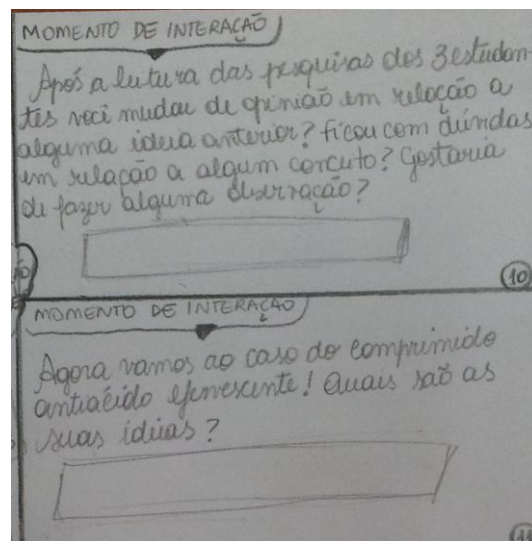 MOMENTO DE INTERAÇÃO
Após a leitura das pesquisas dos 3 estudan-
tes você mudou de opinião em relação a
alguma ideia anterior? Ficou com dúvidas
em relação a algum conceito? Gostaria
de fazer alguma observação?
10
MOMENTO DE INTERAÇÃO
Agora vamos ao caso do comprimido
antiácido efervescente! Quais são as
suas ideias?